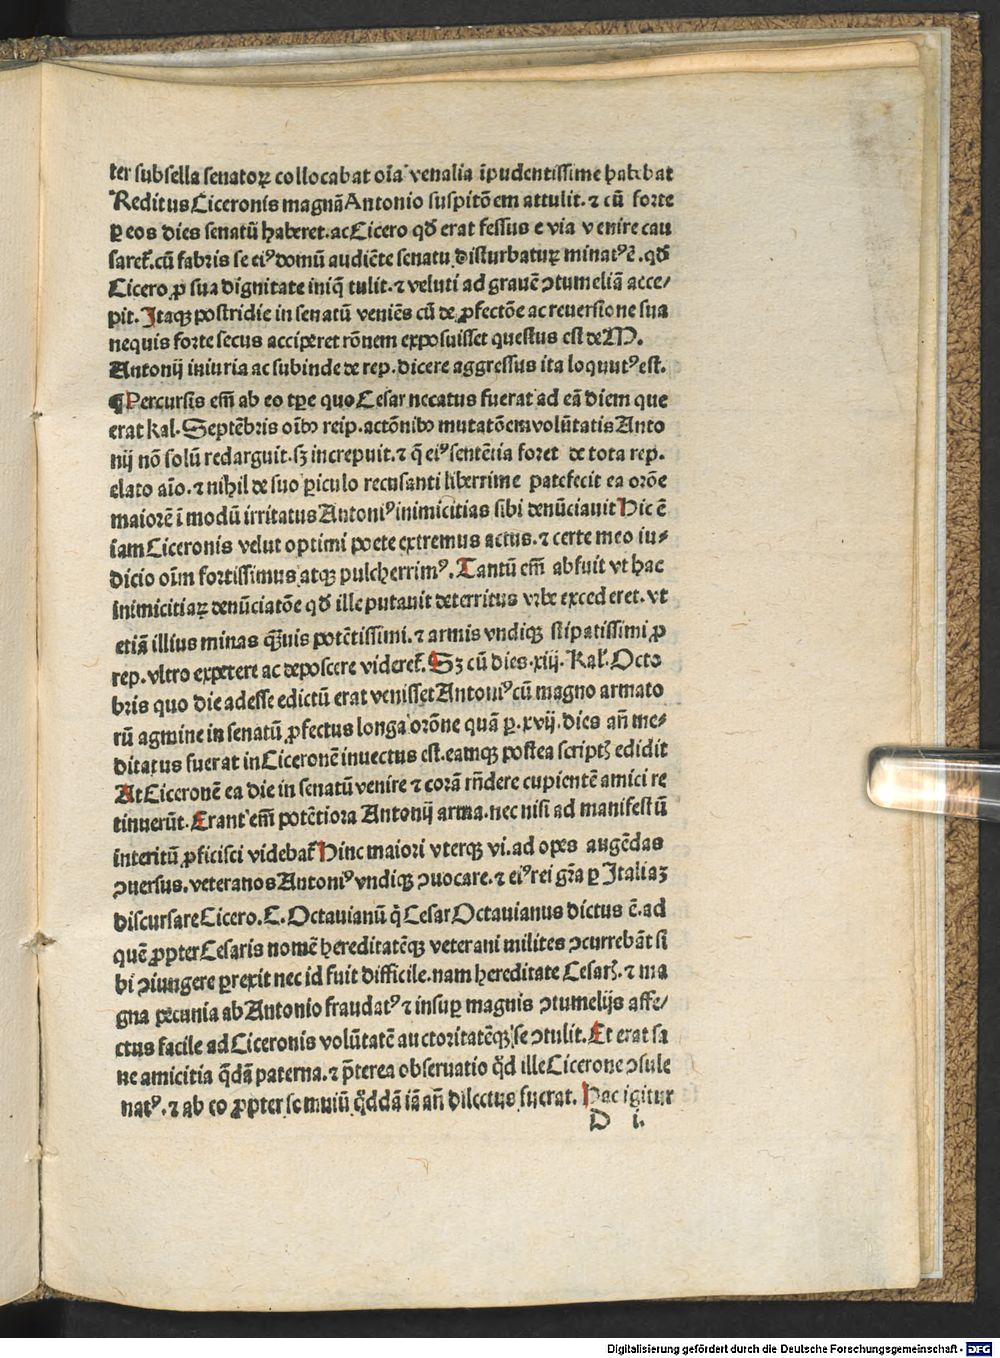 ter subsella senatoꝝ collocabat oīa venalia īpudentissime habebat
Reditus Ciceronis magnā Antonio suspitōem attulit. ⁊ cū forte
ꝑ eos dies senatū haberet. ac Cicero qđ erat fessus e via venire cau
saret̄. cū fabris se eiꝰ domū audiēte senatu disturbaturꝝ minatꝰ ē. qđ
Cicero ꝓ sua dignitate iniq̄ tulit. ⁊ veluti ad grauē ↄtumeliā acce⸗
pit. Itaqꝫ postridie in senatū veniēs cū de ꝓfectōe ac reuersione sua
nequis forte secus acciperet rōnem exposuisset questus est de M.
Antonij iniuria ac subinde de rep. dicere aggressus ita loquutꝰ est.
¶ Percursis em̄ ab eo tꝑe quo Cesar necatus fuerat ad eā diem que
erat kal. Septēbris oībꝰ reip. actōnibꝰ mutatōem volūtatis Anto
nij nō solū redarguit. sꝫ increpuit. ⁊ q̄ eiꝰ sentētia foret de tota rep.
elato aīo. ⁊ nihil de suo ꝑiculo recusanti liberrime patefecit ea orōe
maiorē ī modū irritatus Antoniꝰ inimicitias sibi denūciauit Hic ē
iam Ciceronis velut optimi poete extremus actus. ⁊ certe meo iu⸗
dicio oīm fortissimus atqꝫ pulcherrimꝰ. Tantū em̄ abfuit vt hac
inimicitiaꝝ denūciatōe qđ ille putauit deterritus vrbe excederet. vt
etiā illius minas q̄uis potētissimi. ⁊ armis vndiqꝫ stipatissimi ꝓ
rep. vltro expetere ac deposcere videret̄. Sꝫ cū dies .xiij. Kal. Octo
bris quo die adesse edictū erat venisset Antoniꝰ cū magno armato
rū agmine in senatū ꝓfectus longa orōne quā ꝑ .xvij. dies an̄ me⸗
ditatus fuerat in Ciceronē inuectus est. eamqꝫ postea scriptꝭ edidit
At Ciceronē ea die in senatū venire ⁊ corā rn̄dere cupientē amici re
tinuerūt. Erant em̄ potētiora Antonij arma. nec nisi ad manifestū
interitū ꝓficisci videbat̄ Hinc maiori vterqꝫ vi. ad opes augēdas
ↄuersus. veteranos Antoniꝰ vndiqꝫ ↄuocare. ⁊ eiꝰ rei gr̄a ꝑ Italiaꝫ
discursare Cicero. C. Octauianū q̇ Cesar Octauianus dictus ē. ad
quē ꝓpter Cesaris nomē hereditatēqꝫ veterani milites ↄcurrebāt si
bi ↄiungere ꝑrexit nec id fuit difficile. nam hereditate Cesarꝭ. ⁊ ma
gna pecunia ab Antonio fraudatꝰ ⁊ insuꝑ magnis ↄtumelijs affe⸗
ctus facile ad Ciceronis volūtatē auctoritatēqꝫ se ↄtulit. Et erat sa
ne amicitia q̄dā paterna. ⁊ p̄terea obseruatio q̇d ille Cicerone ↄsule
natꝰ. ⁊ ab eo ꝓpter se muiū q̇ddā iā an̄ dilectus fuerat. Hac igitur
D i.
Digitalisierung gefördert durch die Deutsche Forschungsgemeinschaft - DFG